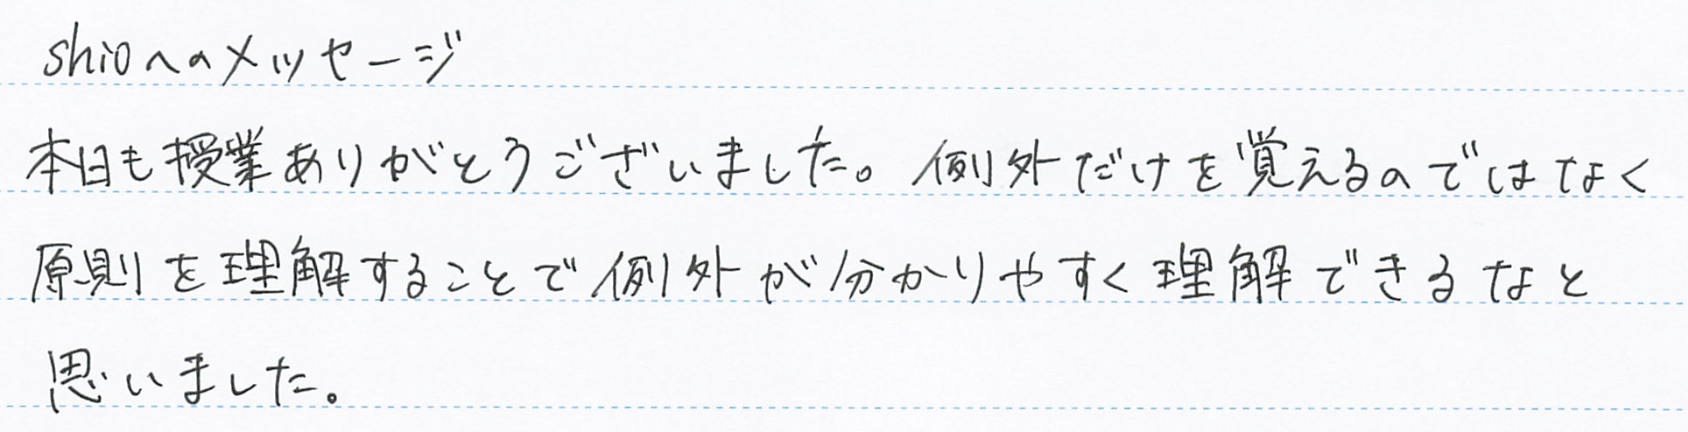 shioへのメッセージ
本日も授業ありがとうございました。例外だけを覚えるのではなく
原則を理解することで例外が分かりやすく理解できるなと
思いました。